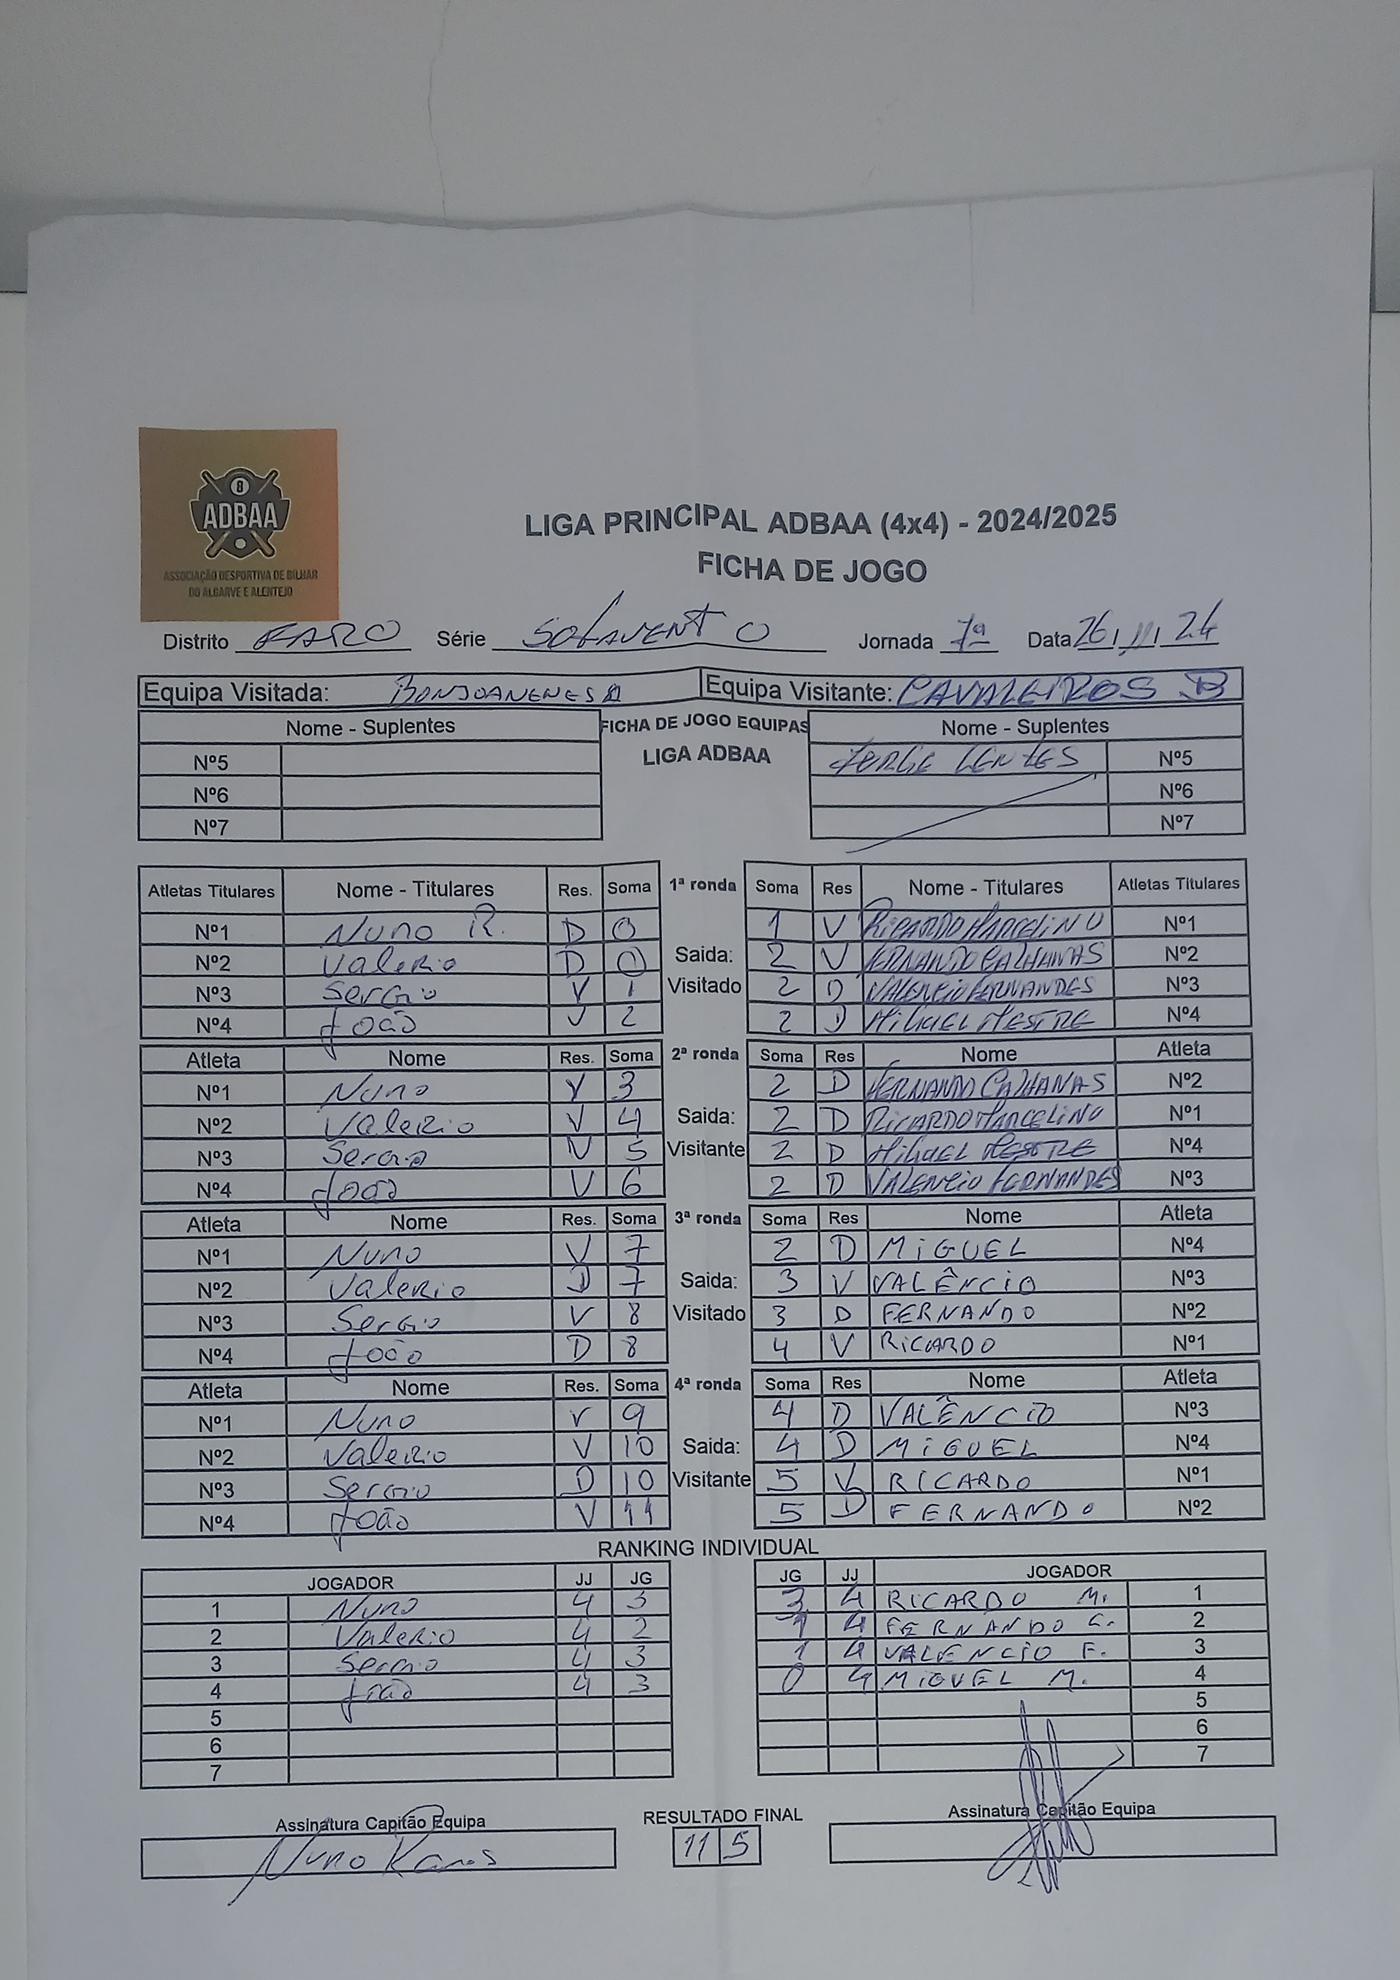 8
ADBAA
ASSOCIAÇÃO DESPORTIVA DE BILHAR
DO ALGARVE E ALENTEJO
LIGA PRINCIPAL ADBAA (4x4) - 2024/2025
FICHA DE JOGO
Distrito FARO Série SOTAVENTO Jornada 7ª Data 26/11/24
Equipa Visitada: BONJOANENES Equipa Visitante: CAVALEIROS B
Nome - Suplentes FICHA DE JOGO EQUIPAS Nome - Suplentes
LIGA ADBAA
Nº5 JORGE Nº5
Nº6 Nº6
Nº7 Nº7
Atletas Titulares Nome - Titulares Res. Soma 1ª ronda Soma Res Nome - Titulares Atletas Titulares
Nº1 Nuno R. D 0 1 V RICARDO MARCELINO Nº1
Nº2 Valerio D 0 Saida: 2 V FERNANDO CALHANAS Nº2
Nº3 Sergio V 1 Visitado 2 D VALENCIO FERNANDES Nº3
Nº4 João V 2 2 D MIGUEL MESTRE Nº4
Atleta Nome Res. Soma 2ª ronda Soma Res Nome Atleta
Nº1 Nuno V 3 2 D FERNANDO CALHANAS Nº2
Nº2 Valerio V 4 Saida: 2 D RICARDO MARCELINO Nº1
Nº3 Sergio V 5 Visitante 2 D MIGUEL MESTRE Nº4
Nº4 João V 6 2 D VALENCIO FERNANDES Nº3
Atleta Nome Res. Soma 3ª ronda Soma Res Nome Atleta
Nº1 Nuno V 7 2 D MIGUEL Nº4
Nº2 Valerio D 7 Saida: 3 V VALÊNCIO Nº3
Nº3 Sergio V 8 Visitado 3 D FERNANDO Nº2
Nº4 João D 8 4 V RICARDO Nº1
Atleta Nome Res. Soma 4ª ronda Soma Res Nome Atleta
Nº1 Nuno V 9 4 D VALÊNCIO Nº3
Nº2 Valerio V 10 Saida: 4 D MIGUEL Nº4
Nº3 Sergio D 10 Visitante 5 V RICARDO Nº1
Nº4 João V 11 5 D FERNANDO Nº2
RANKING INDIVIDUAL
JOGADOR JJ JG JG JJ JOGADOR
1 Nuno 4 3 3 4 RICARDO M. 1
2 Valerio 4 2 1 4 FERNANDO C. 2
3 Sergio 4 3 1 4 VALENCIO F. 3
4 João 4 3 0 4 MIGUEL M. 4
5 5
6 6
7 7
Assinatura Capitão Equipa RESULTADO FINAL Assinatura Capitão Equipa
Nuno 11 5